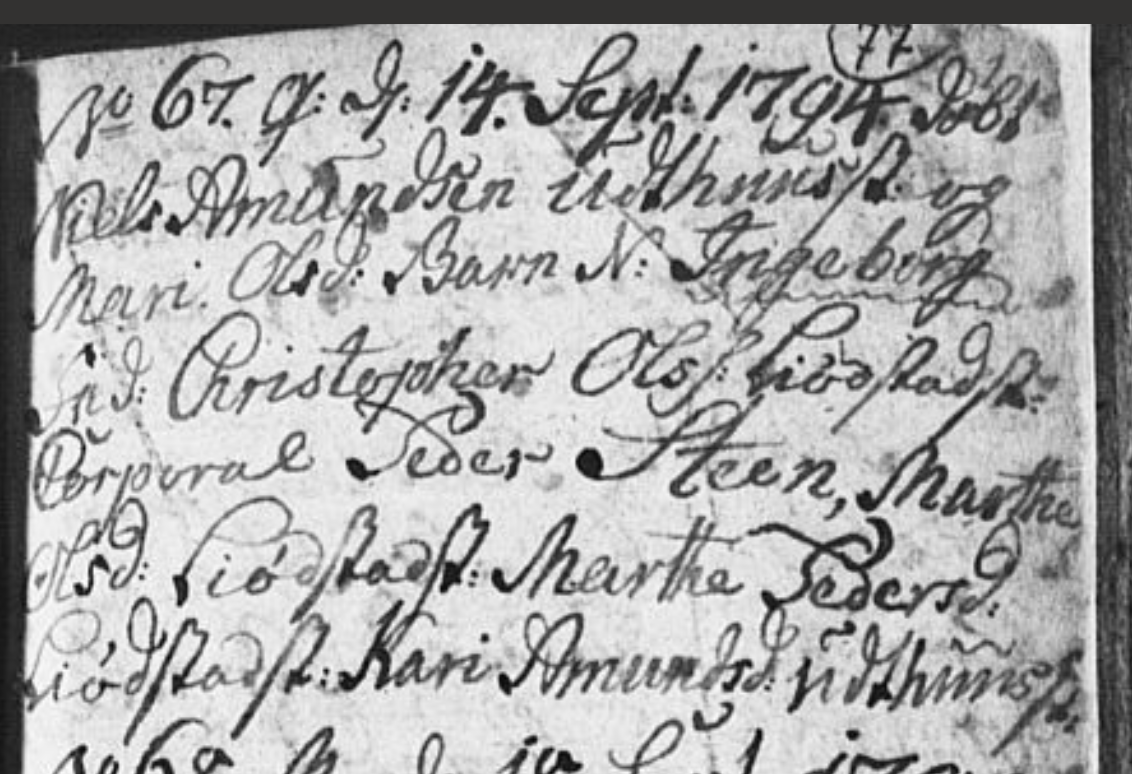 77
No 67. G: D: 14. Sept: 1794. Døbt
Niels Amundsen Udthuusst: og
Mari. Olsd: Barn N: Ingeborg
Ind: Christopher Olss: Liødstadst:
Corporal Peder Steen, Marthe
Olsd: Liødstadst: Marthe Pedersd:
Liødstadst: Kari Amundsd: Udthuusst:
No 68.